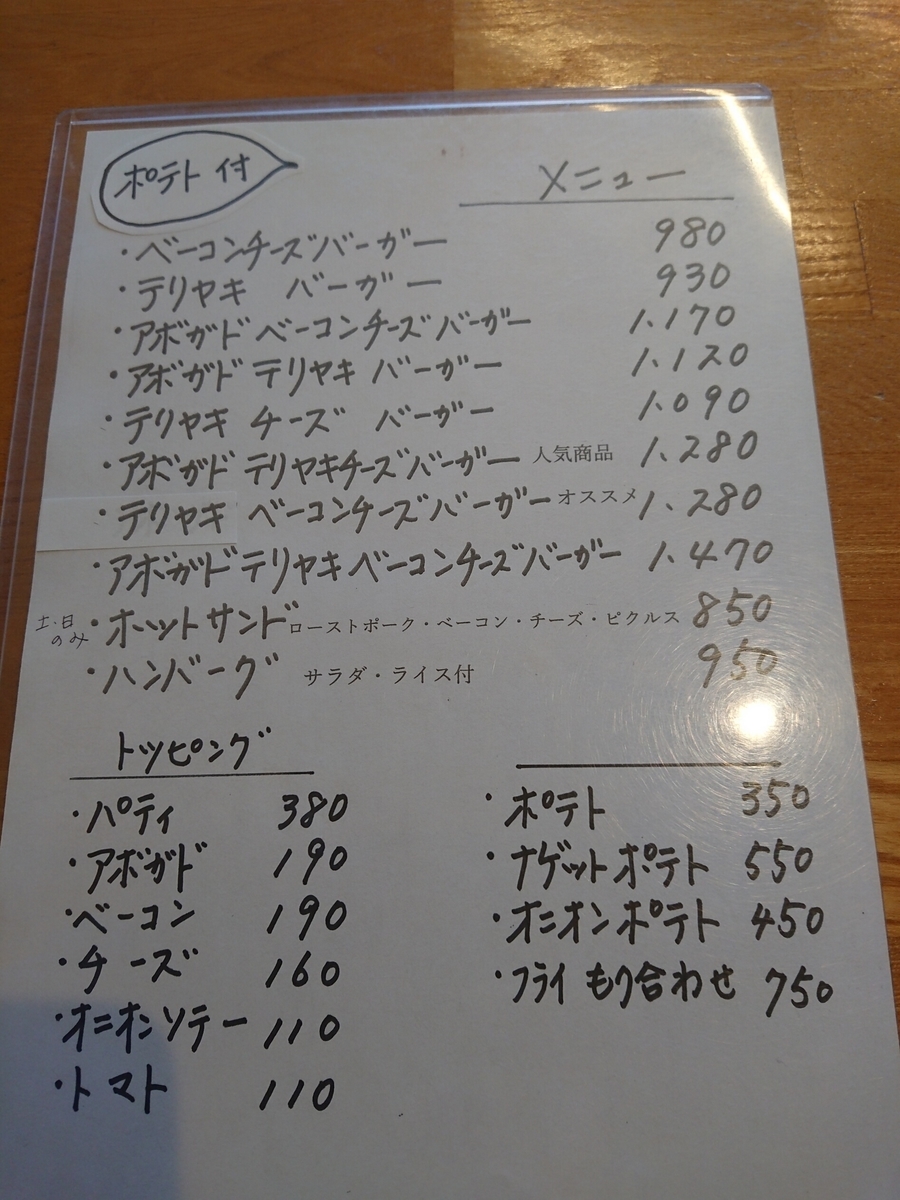 ポテト付
メニュー
・ベーコンチーズバーガー 980
・テリヤキ バーガー 930
・アボガド ベーコンチーズバーガー 1.170
・アボガド テリヤキ バーガー 1.120
・テリヤキ チーズ バーガー 1.090
・アボガド テリヤキチーズバーガー 人気商品 1.280
・テリヤキ ベーコンチーズバーガー オススメ 1.280
・アボガドテリヤキベーコンチーズバーガー 1.470
土・日のみ ・ホットサンド ローストポーク・ベーコン・チーズ・ピクルス 850
・ハンバーグ サラダ・ライス付 950
トッピング
・パティ 380
・アボガド 190
・ベーコン 190
・チーズ 160
・オニオンソテー 110
・トマト 110
・ポテト 350
・ナゲットポテト 550
・オニオンポテト 450
・フライもり合わせ 750